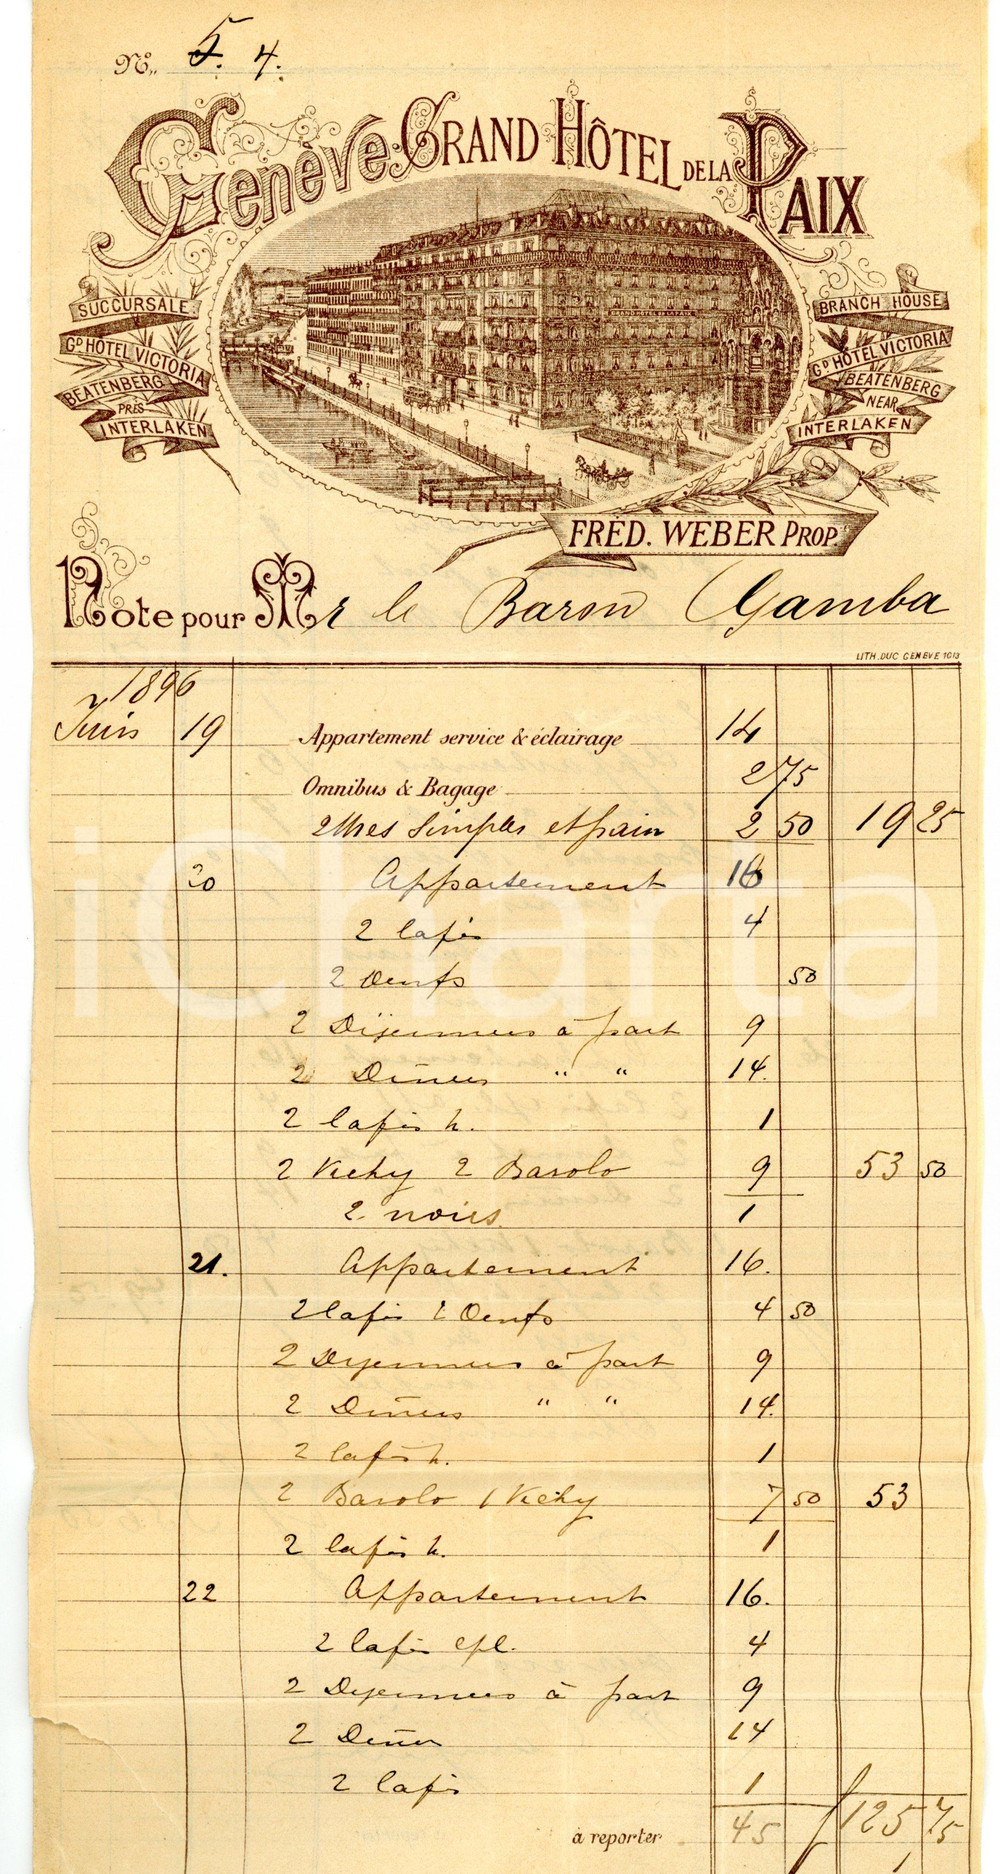 No. 5. 4.
Genève. GRAND HÔTEL DE LA PAIX
SUCCURSALE
GD HÔTEL VICTORIA
BEATENBERG
PRÈS
INTERLAKEN
BRANCH HOUSE
GD HÔTEL VICTORIA
BEATENBERG
NEAR
INTERLAKEN
FRÉD. WEBER PROP.
Note pour Mr le Baron Gamba
LITH. DUC GENÈVE 1613
1896
Juin 19 Appartement service & éclairage 14
Omnibus & Bagage 2 75
2 thés simples et pain 2 50 19 25
20 Appartement 16
2 Cafés 4
2 Oeufs 50
2 Déjeuners à part 9
2 Dîners " " 14.
2 Cafés n. 1
2 Vichy 2 Barolo 9 53 50
2 noirs 1
21. Appartement 16.
2 Cafés 2 Oeufs 4 50
2 Dejeuners à part 9
2 Dîners " " 14.
2 Cafés n. 1
2 Barolo 1 Vichy 7 50 53
2 Cafés n. 1
22 Appartement 16.
2 Cafés cpl. 4
2 Dejeuners à part 9
2 Dîner 14
2 Cafés 1
à reporter 45 125 75
1
iCharta